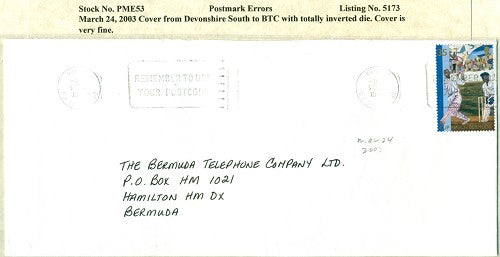 Stock No. PME53 Postmark Errors Listing No. 5173
March 24, 2003 Cover from Devonshire South to BTC with totally inverted die. Cover is
very fine.
REMEMBER TO USE
YOUR POSTCODE
THE BERMUDA TELEPHONE COMPANY LTD.
P.O. BOX HM 1021
HAMILTON HM DX
BERMUDA
2003